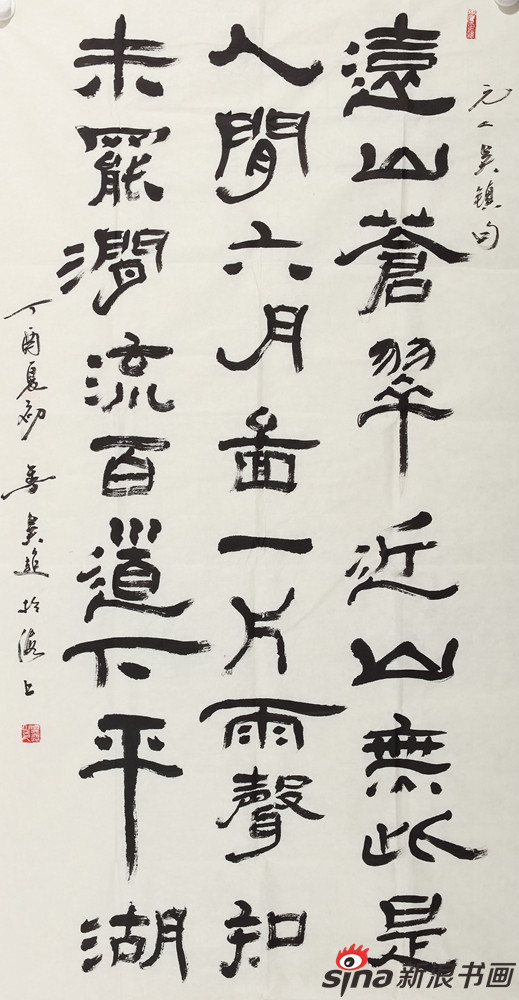 元人吴镇句
遠山蒼翠近山無此是
人間六月啚一片雨聲知
未罷澗流百道下平湖
丁酉夏初 吴 於 上
sina新浪书画